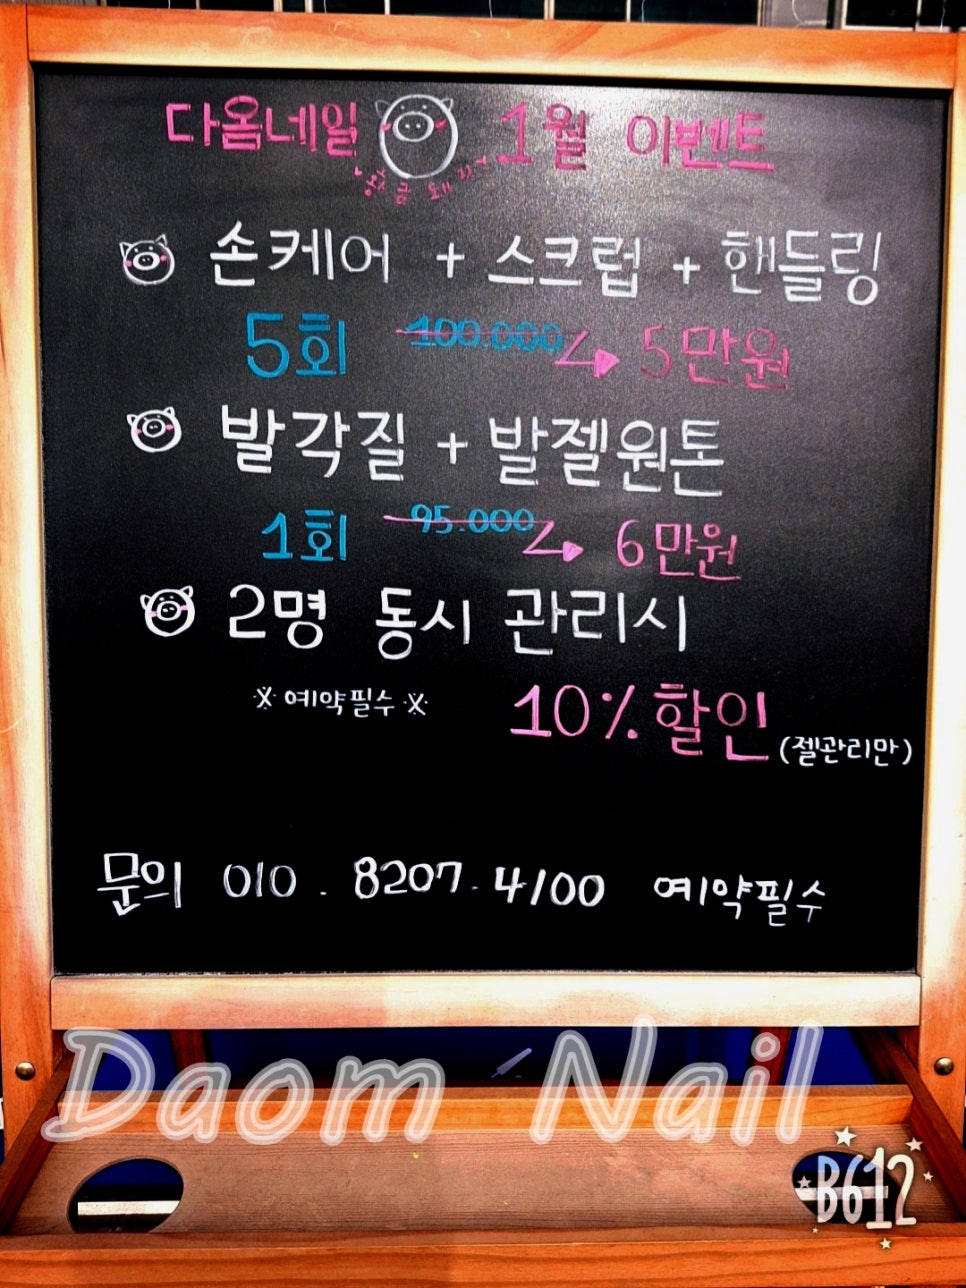 다옴네일 1월 이벤트
황금돼지
손케어 + 스크럽 + 핸들링
5회 100.000 5만원
발각질 + 발젤원톤
1회 95.000 6만원
2명 동시 관리시
※ 예약필수 ※ 10% 할인 (젤관리만)
문의 010.8207.4100 예약필수
Daom Nail
B612